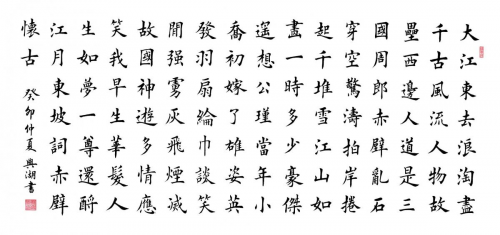 大江東去浪淘盡
千古風流人物故
壘西邊人道是三
國周郎赤壁亂石
穿空驚濤拍岸捲
起千堆雪江山如
畫一時多少豪傑
遥想公瑾當年小
喬初嫁了雄姿英
發羽扇綸巾談笑
間强虜灰飛煙滅
故國神遊多情應
笑我早生華髮人
生如夢一尊還酹
江月東坡詞赤壁
懷古
癸卯仲夏興湖書